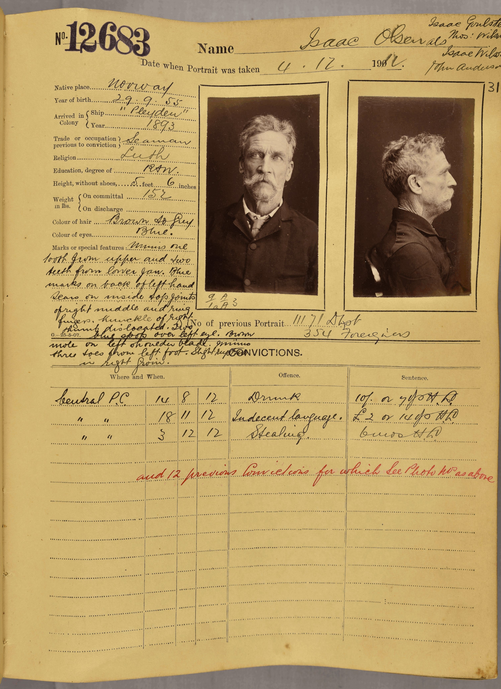 No. 12683
Name Isaac Olsen als Isaac
Thos: Wils
Isaac Wils
John Anders
Date when Portrait was taken 4. 12. 1912.
31
Native place. Norway
Year of birth 29. 9. 55
Arrived in Colony { Ship "Pleyden"
Year 1893
Trade or occupation previous to conviction } Seaman
Religion Luth
Education, degree of R&W.
Height, without shoes, 5 feet 6 inches
Weight in lbs. { On committal 152
On discharge
Colour of hair Brown to Grey
Colour of eyes Blue.
Marks or special features Minus one
tooth from upper and two
teeth from lower jaw. Blue
marks on back of left hand
Scars on inside top joints
of right middle and ring
fingers. Knuckle of right
thumb dislocated.
blue spot over left eye. Brown
mole on left shoulder blade. minus
three toes from left foot. Slight
in right groin.
No of previous Portrait 11171 Dbot
354 Foreigners
CONVICTIONS.
Where and When. Offence. Sentence.
Central P.C 14 8 12 Drunk 10/- or 7 dys H LD
" " 18 11 12 Indecent language. £2 or 14 dys H LD
" " 3 12 12 Stealing. 6 mos H LD
and 12 previous Convictions for which see Photo Nos as above